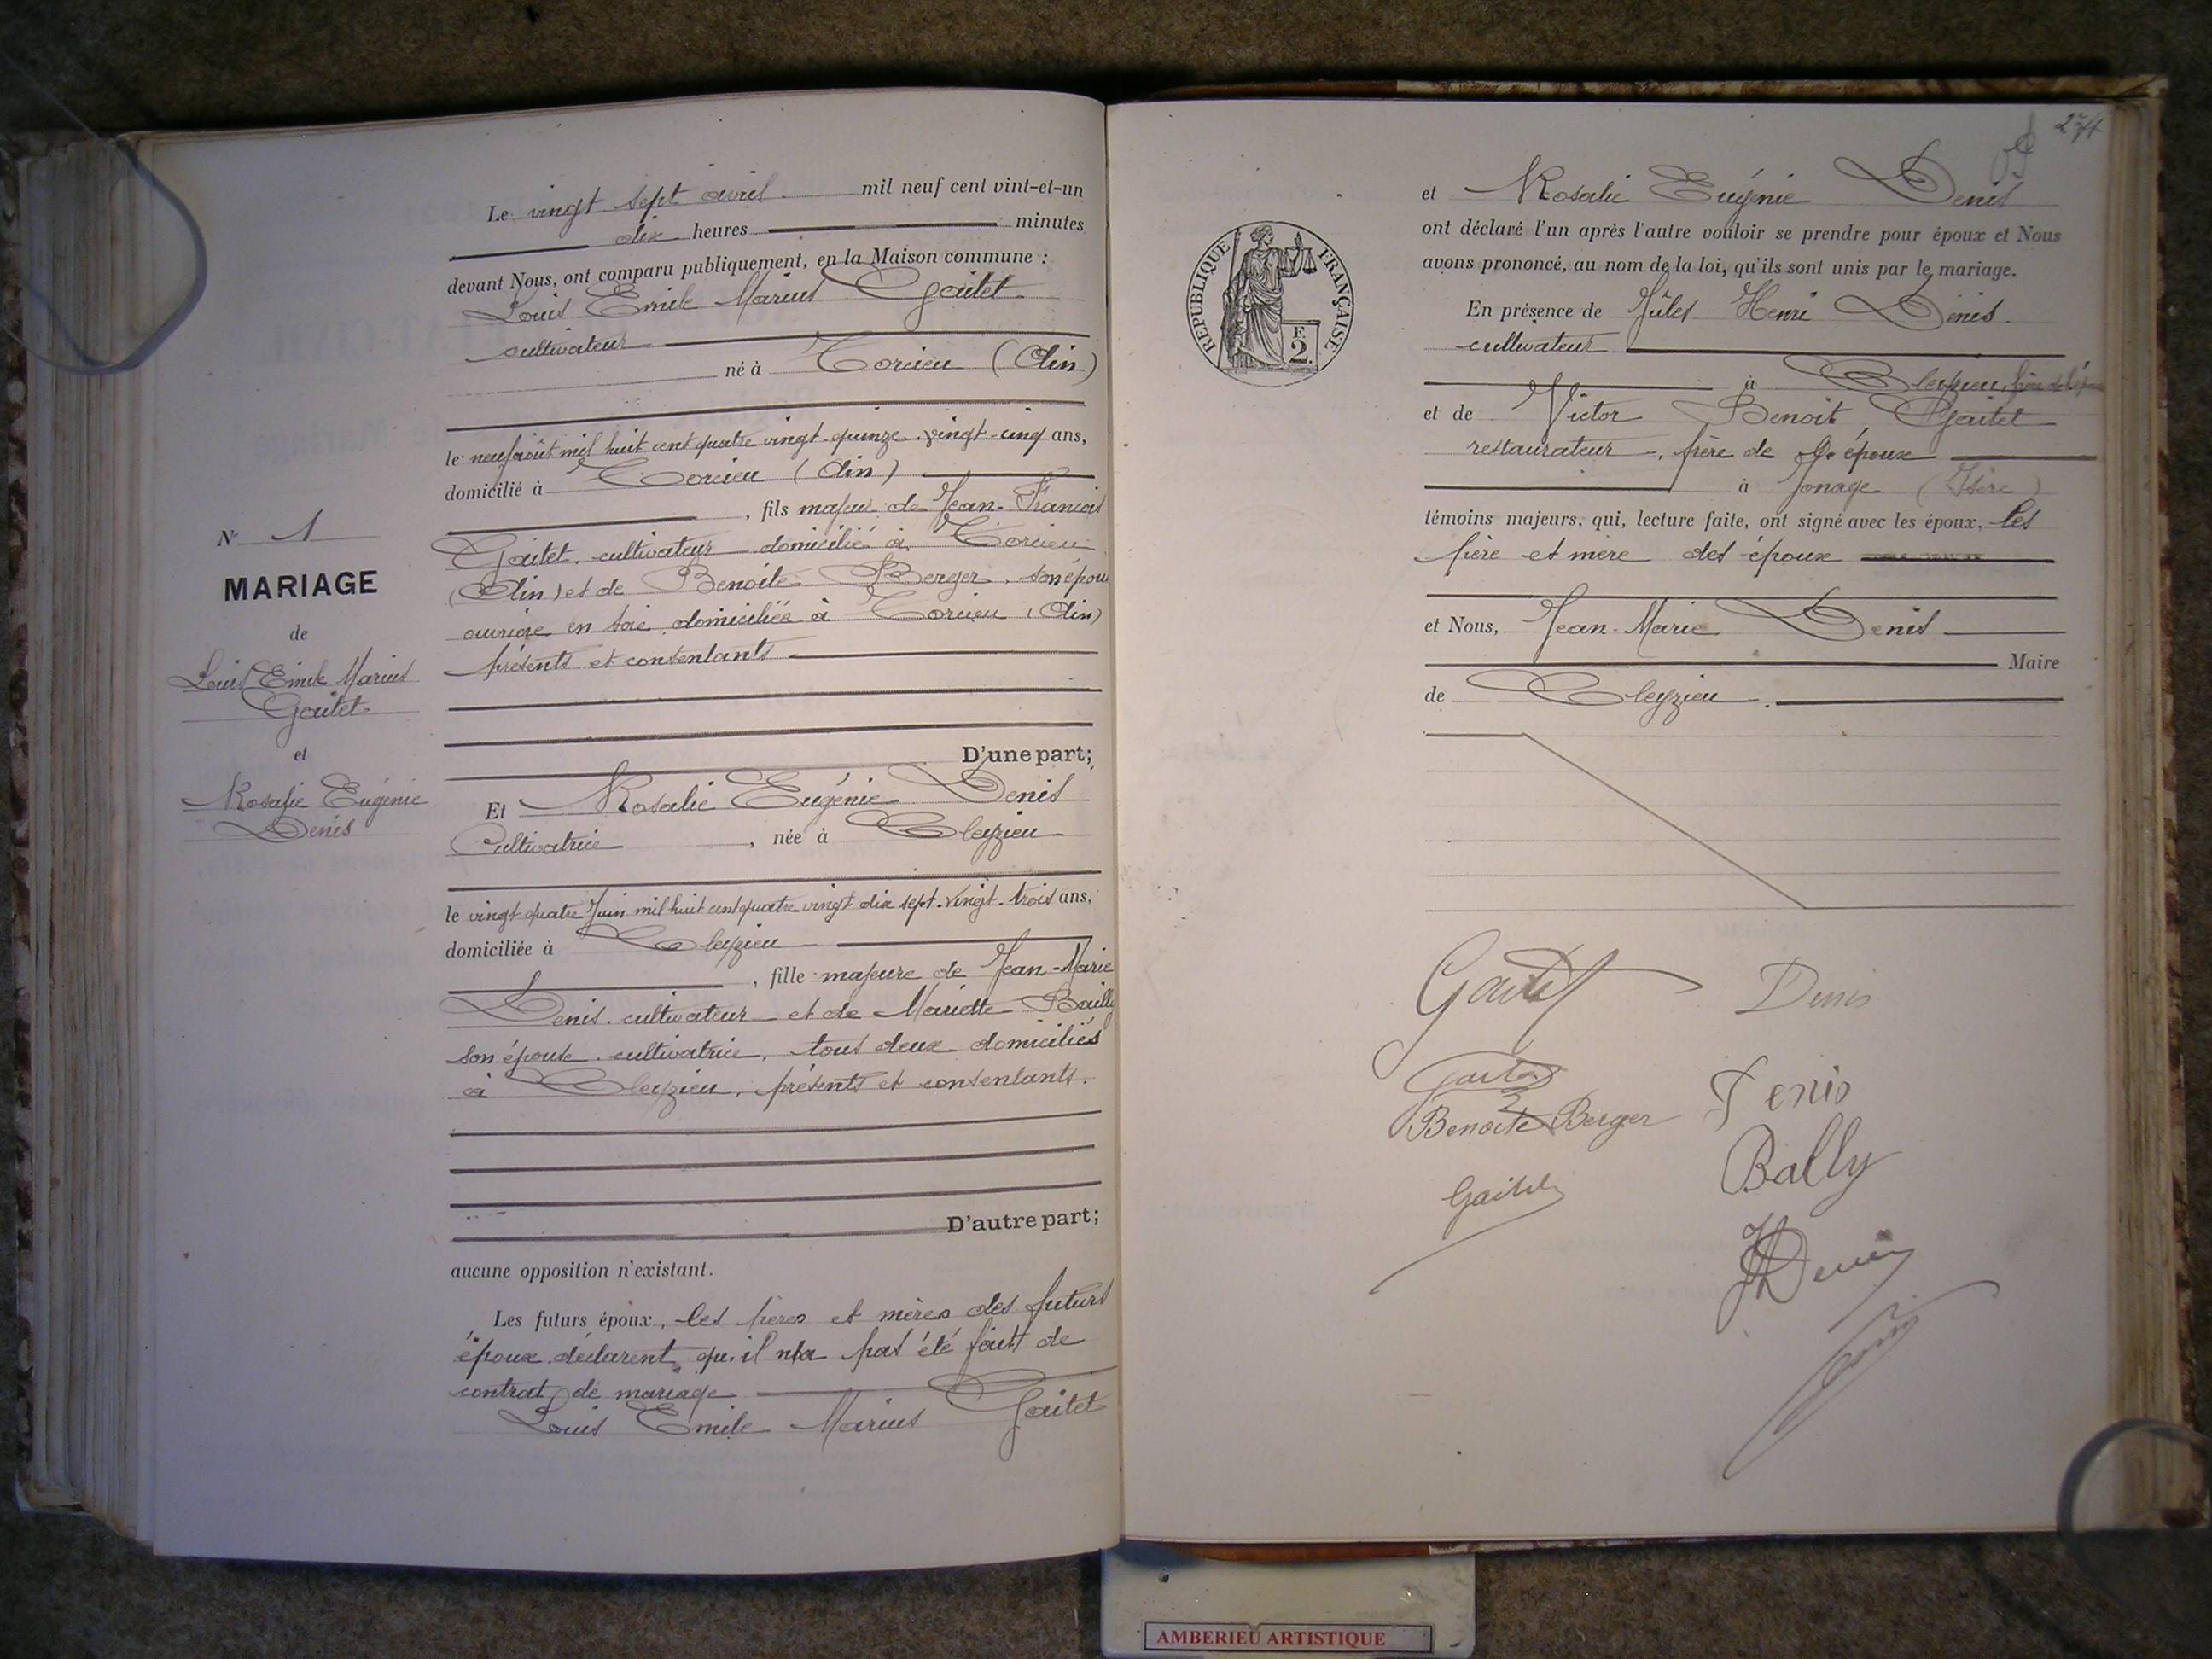 Le vingt sept avril mil neuf cent vint-et-un
dix heures minutes
devant Nous, ont comparu publiquement, en la Maison commune :
Louis Emile Marius Gaitet
cultivateur
né à Torcieu (Ain)
le neuf août mil huit cent quatre vingt-quinze. vingt-cinq ans,
domicilié à Torcieu (Ain)
, fils majeur de Jean-François
Gaitet cultivateur domicilié à Torcieu
(Ain) et de Benoîte Berger, son épouse
ouvrière en soie, domiciliée à Torcieu (Ain)
présents et consentants
D'une part;
Et Rosalie Eugénie Denis
Cultivatrice, née à Cleyzieu
le vingt quatre Juin mil huit cent quatre vingt dix sept. vingt-trois ans,
domiciliée à Cleyzieu
, fille majeure de Jean-Marie
Denis. cultivateur et de Mariette Bailly
son épouse cultivatrice, tous deux domiciliés
à Cleyzieu, présents et consentants.
D'autre part;
aucune opposition n'existant.
Les futurs époux, les pères et mères des futurs
époux déclarent qu'il n'a pas été fait de
contrat de mariage
Louis Emile Marius Gaitet
N° 1
MARIAGE
de
Louis Emile Marius
Gaitet
et
Rosalie Eugénie
Denis
et Rosalie Eugénie Denis
ont déclaré l'un après l'autre vouloir se prendre pour époux et Nous
avons prononcé, au nom de la loi, qu'ils sont unis par le mariage.
En présence de Jules Henri Denis.
cultivateur
à Cleyzieu, frère de l'épouse
et de Victor Benoit Gaitet
restaurateur, frère de l'époux
à Jonage (Isère)
témoins majeurs, qui, lecture faite, ont signé avec les époux, les
père et mère des époux
et Nous, Jean-Marie Denis
Maire
de Cleyzieu.
REPUBLIQUE FRANÇAISE
F.
2
Gaitet Denis
Gaitet Denis
Benoite Berger
Bally
Gaitet
JH Denis
Denis
AMBERIEU ARTISTIQUE